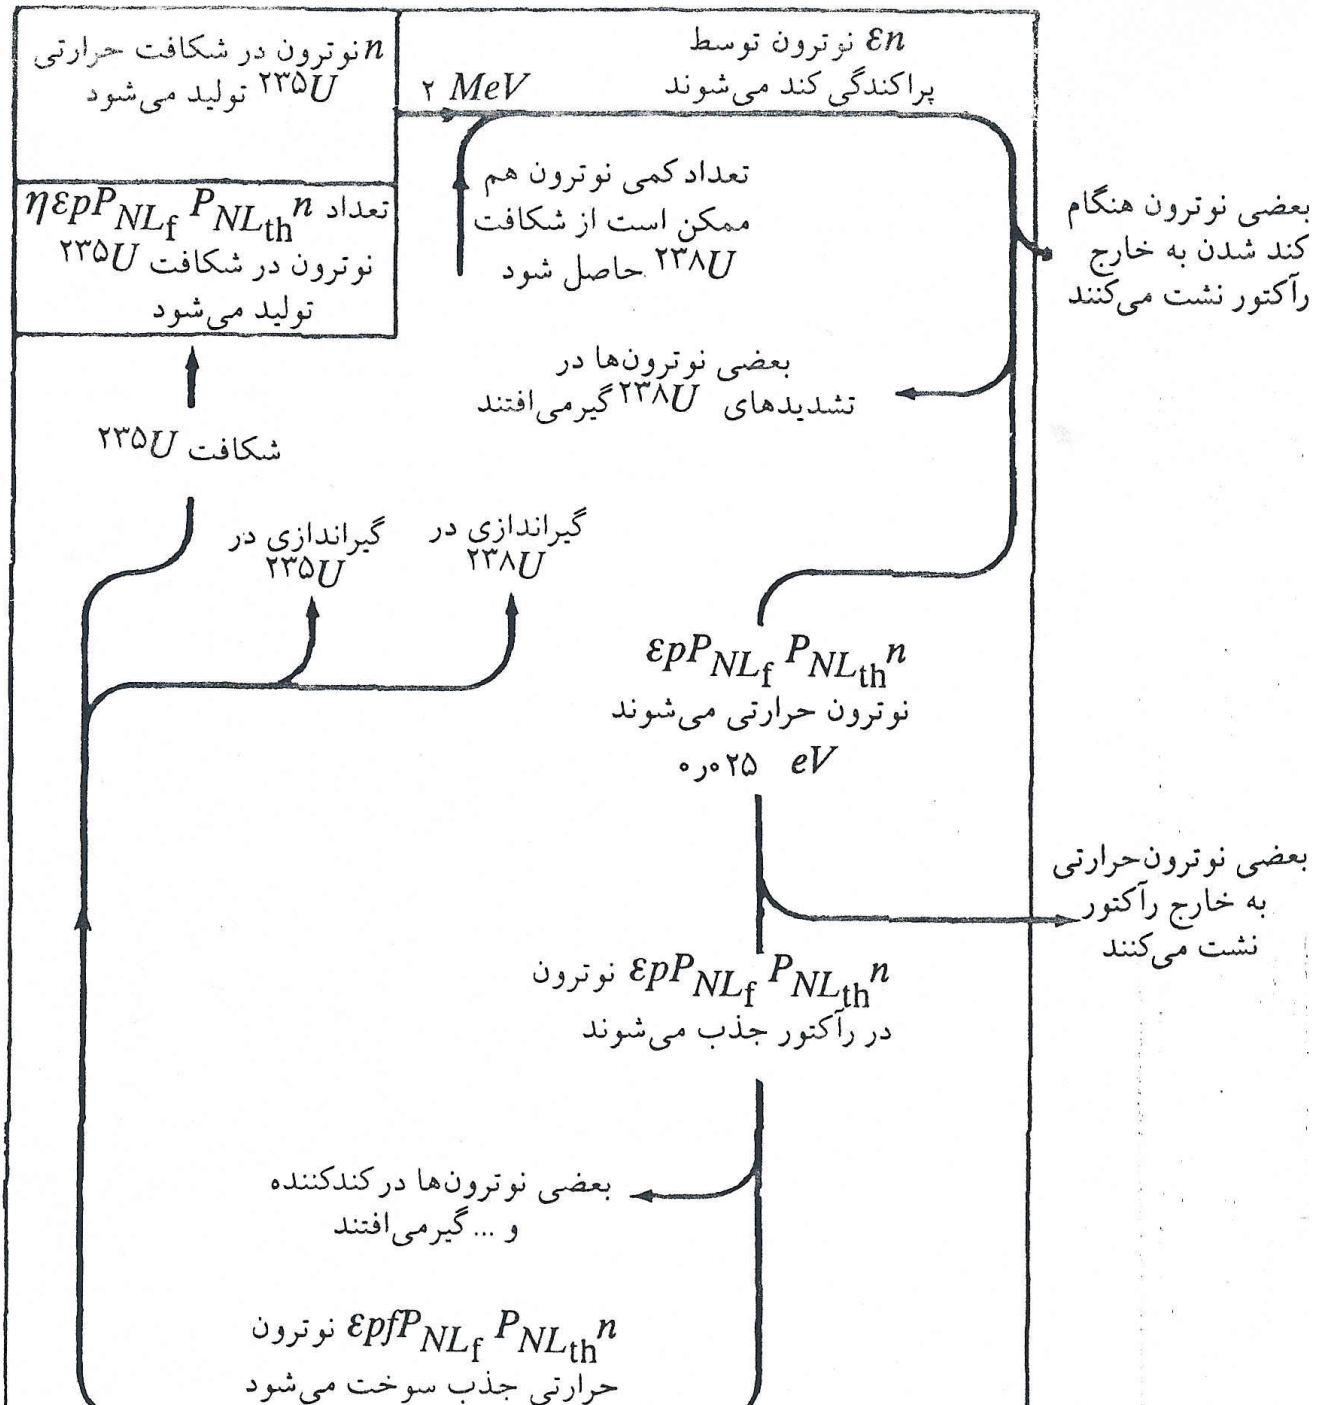 n نوترون در شکافت حرارتی
²³⁵U تولید می‌شود
تعداد ηεpP_NL_f P_NL_th n
نوترون در شکافت ²³⁵U
تولید می‌شود
۲ MeV
εn نوترون توسط
پراکندگی کند می‌شوند
تعداد کمی نوترون هم
ممکن است از شکافت
²³⁸U حاصل شود
بعضی نوترون هنگام
کند شدن به خارج
رآکتور نشت می‌کنند
بعضی نوترون‌ها در
تشدیدهای ²³⁸U گیرمی‌افتند
شکافت ²³⁵U
گیراندازی در
²³⁵U
گیراندازی در
²³⁸U
εpP_NL_f P_NL_th n
نوترون حرارتی می‌شوند
۰٫۰۲۵ eV
بعضی نوترون‌حرارتی
به خارج رآکتور
نشت می‌کنند
εpP_NL_f P_NL_th n نوترون
در رآکتور جذب می‌شوند
بعضی نوترون‌ها در کندکننده
و ... گیرمی‌افتند
εpfP_NL_f P_NL_th n نوترون
حرارتی جذب سوخت می‌شود